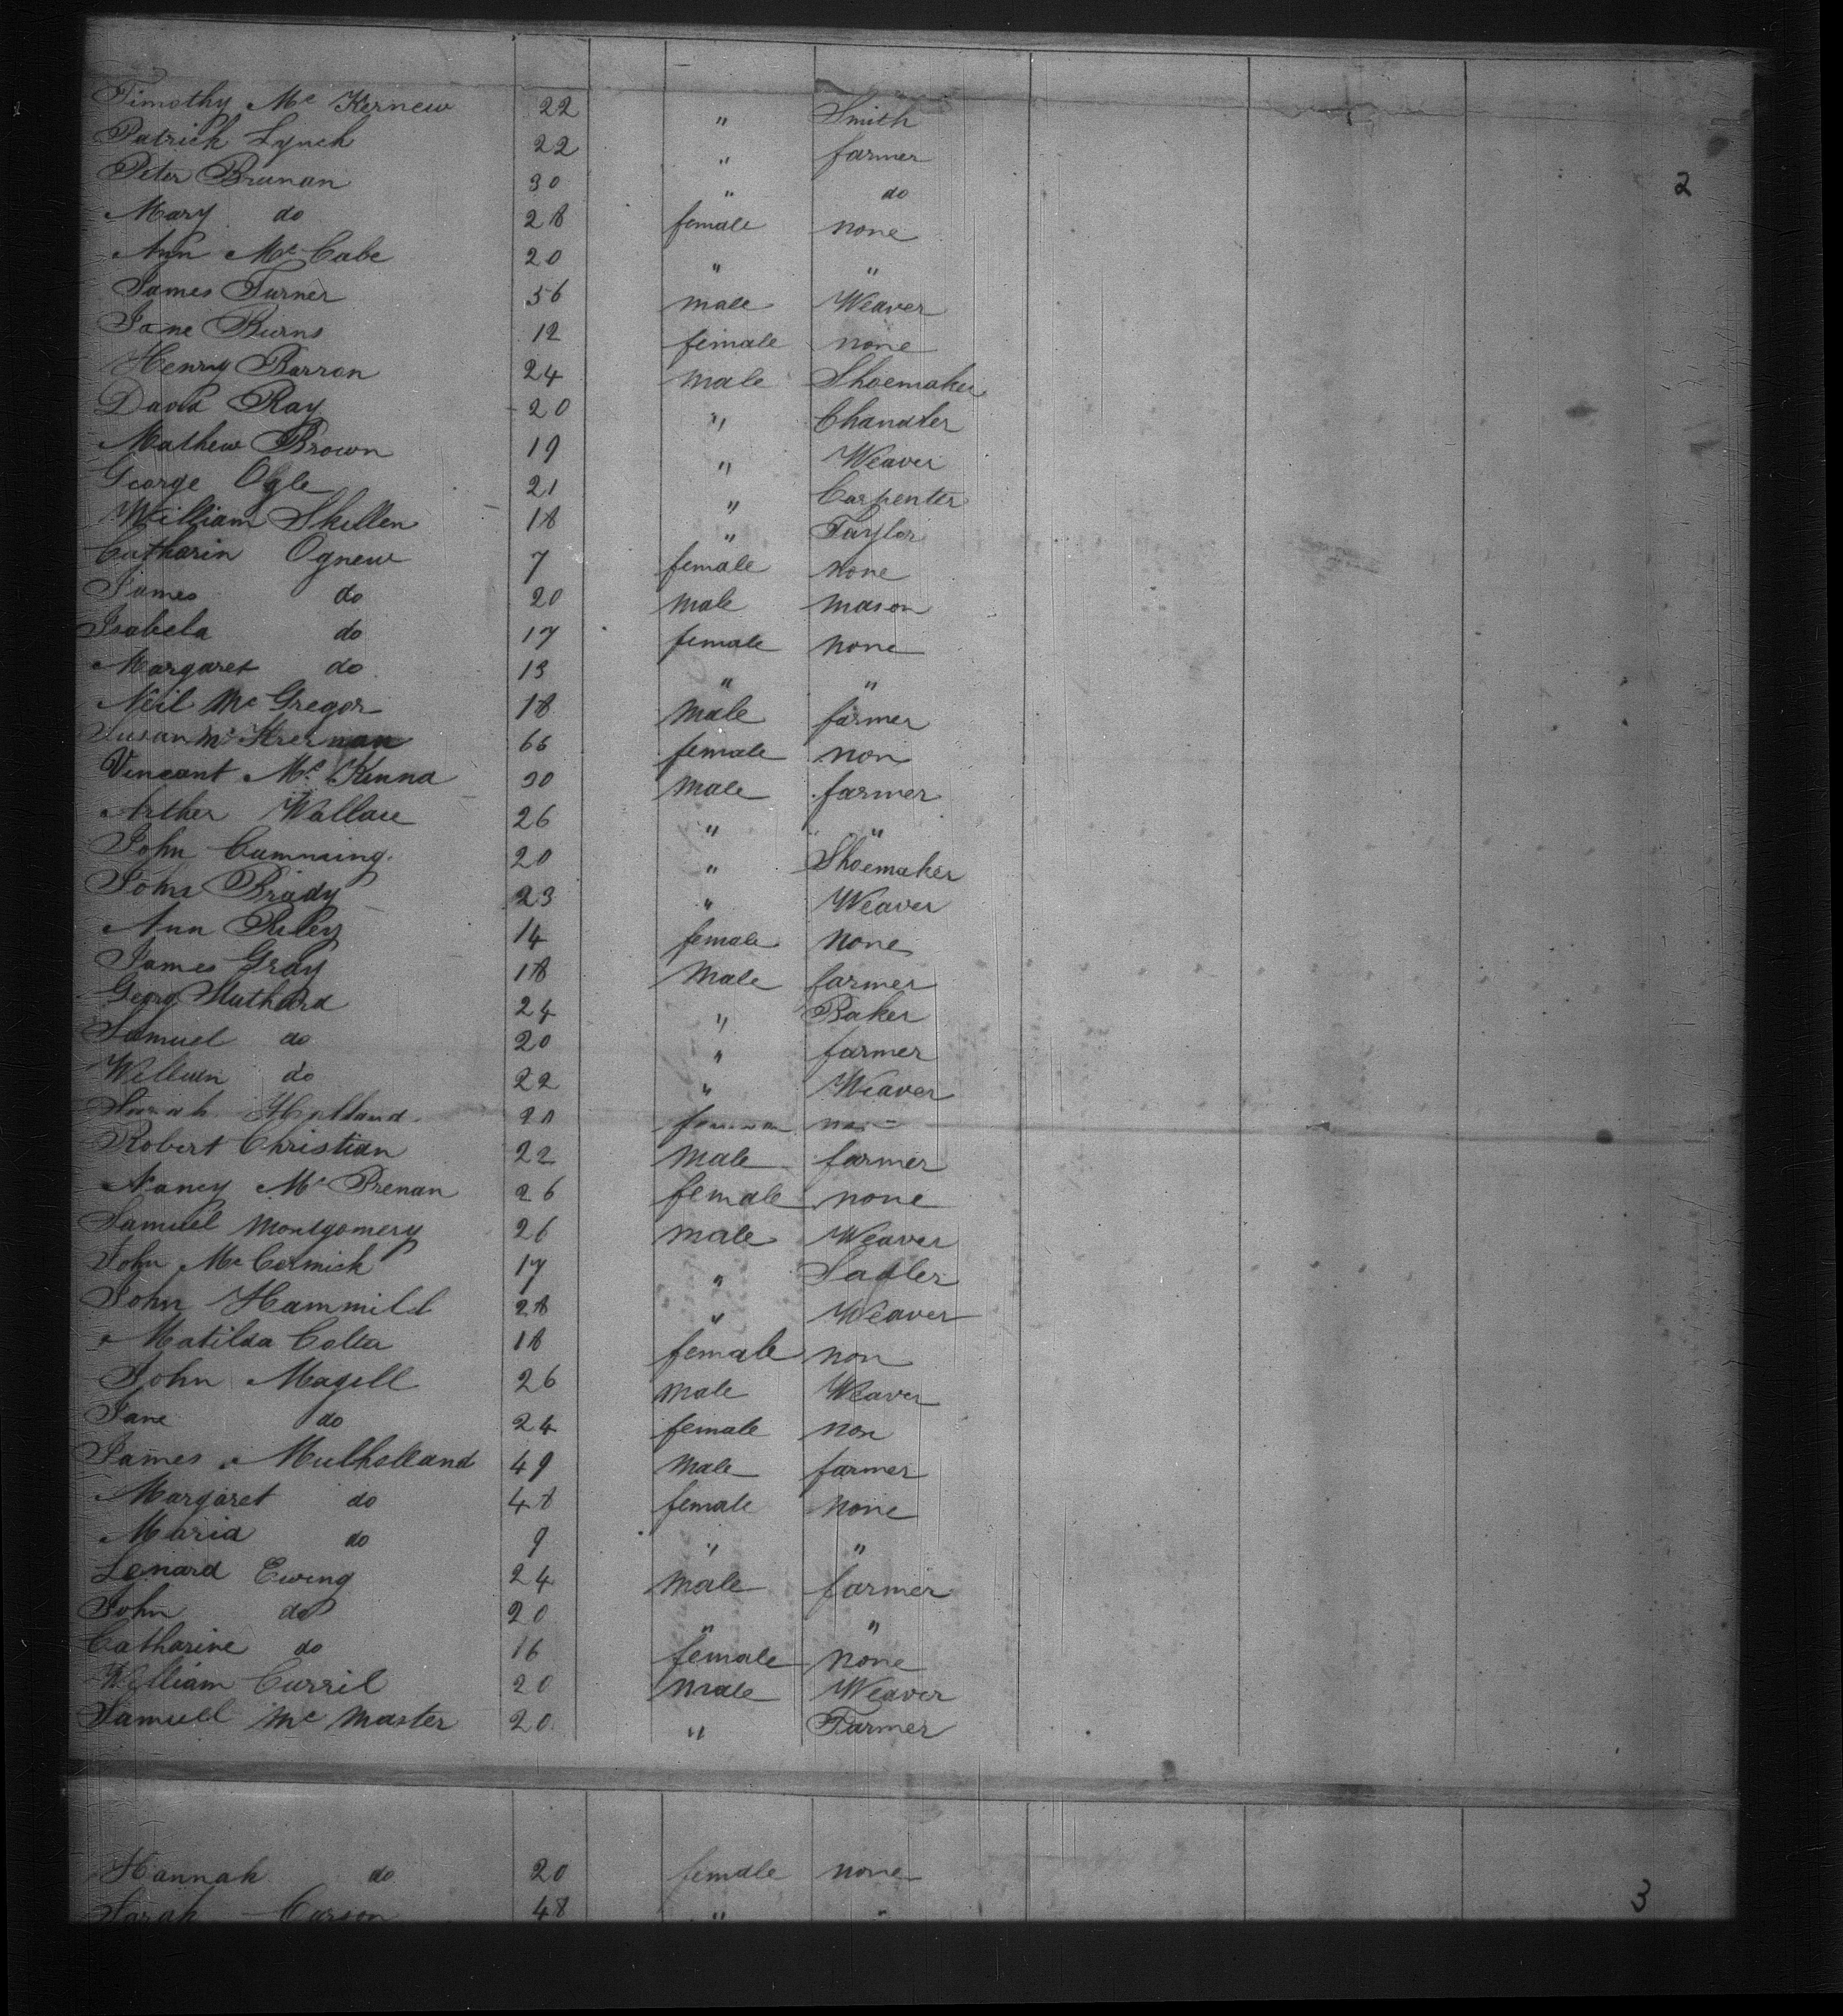 Timothy Mc Kernew 22 " Smith
Patrick Lynch 22 " farmer
Peter Brunan 30 " do 2
Mary do 28 female none
Ann Mc Cabe 20 " "
James Turner 56 male Weaver
Jane Burns 12 female none
Henry Barron 24 male Shoemaker
David Ray 20 " Chandler
Mathew Brown 19 " Weaver
George Ogle 21 " Carpenter
William Skillen 18 " Taylor
Catharin Ognew 7 female none
James do 20 male mason
Isabela do 17 female none
Margaret do 13 " "
Neil Mc Gregor 18 male farmer
Susan Mc 66 female non
Vincant Mc Kinna 30 male farmer
Arther Wallace 26 " "
John Cumming 20 " Shoemaker
John Brady 23 " Weaver
Ann Riley 14 female none
James Gray 18 Male farmer
Georg 24 " Baker
Samuel do 20 " farmer
William do 22 " Weaver
Holland 20
Robert Christian 22 male farmer
Nancy Mc Brenan 26 female none
Samuel Montgomery 26 male Weaver
John Mc Cormick 17 " Sadler
John Hammill 28 " Weaver
Matilda Colter 18 female non
John Magill 26 male Weaver
Jane do 24 female non
James Mulholland 49 male farmer
Margaret do 48 female none
Maria do 9 " "
Lenard Ewing 24 male farmer
John do 20 " "
Catharine do 16 female none
William Curril 20 male Weaver
Samuel Mc Master 20 " Farmer
Hannah do 20 female none
Sarah Carson 48 " " 3